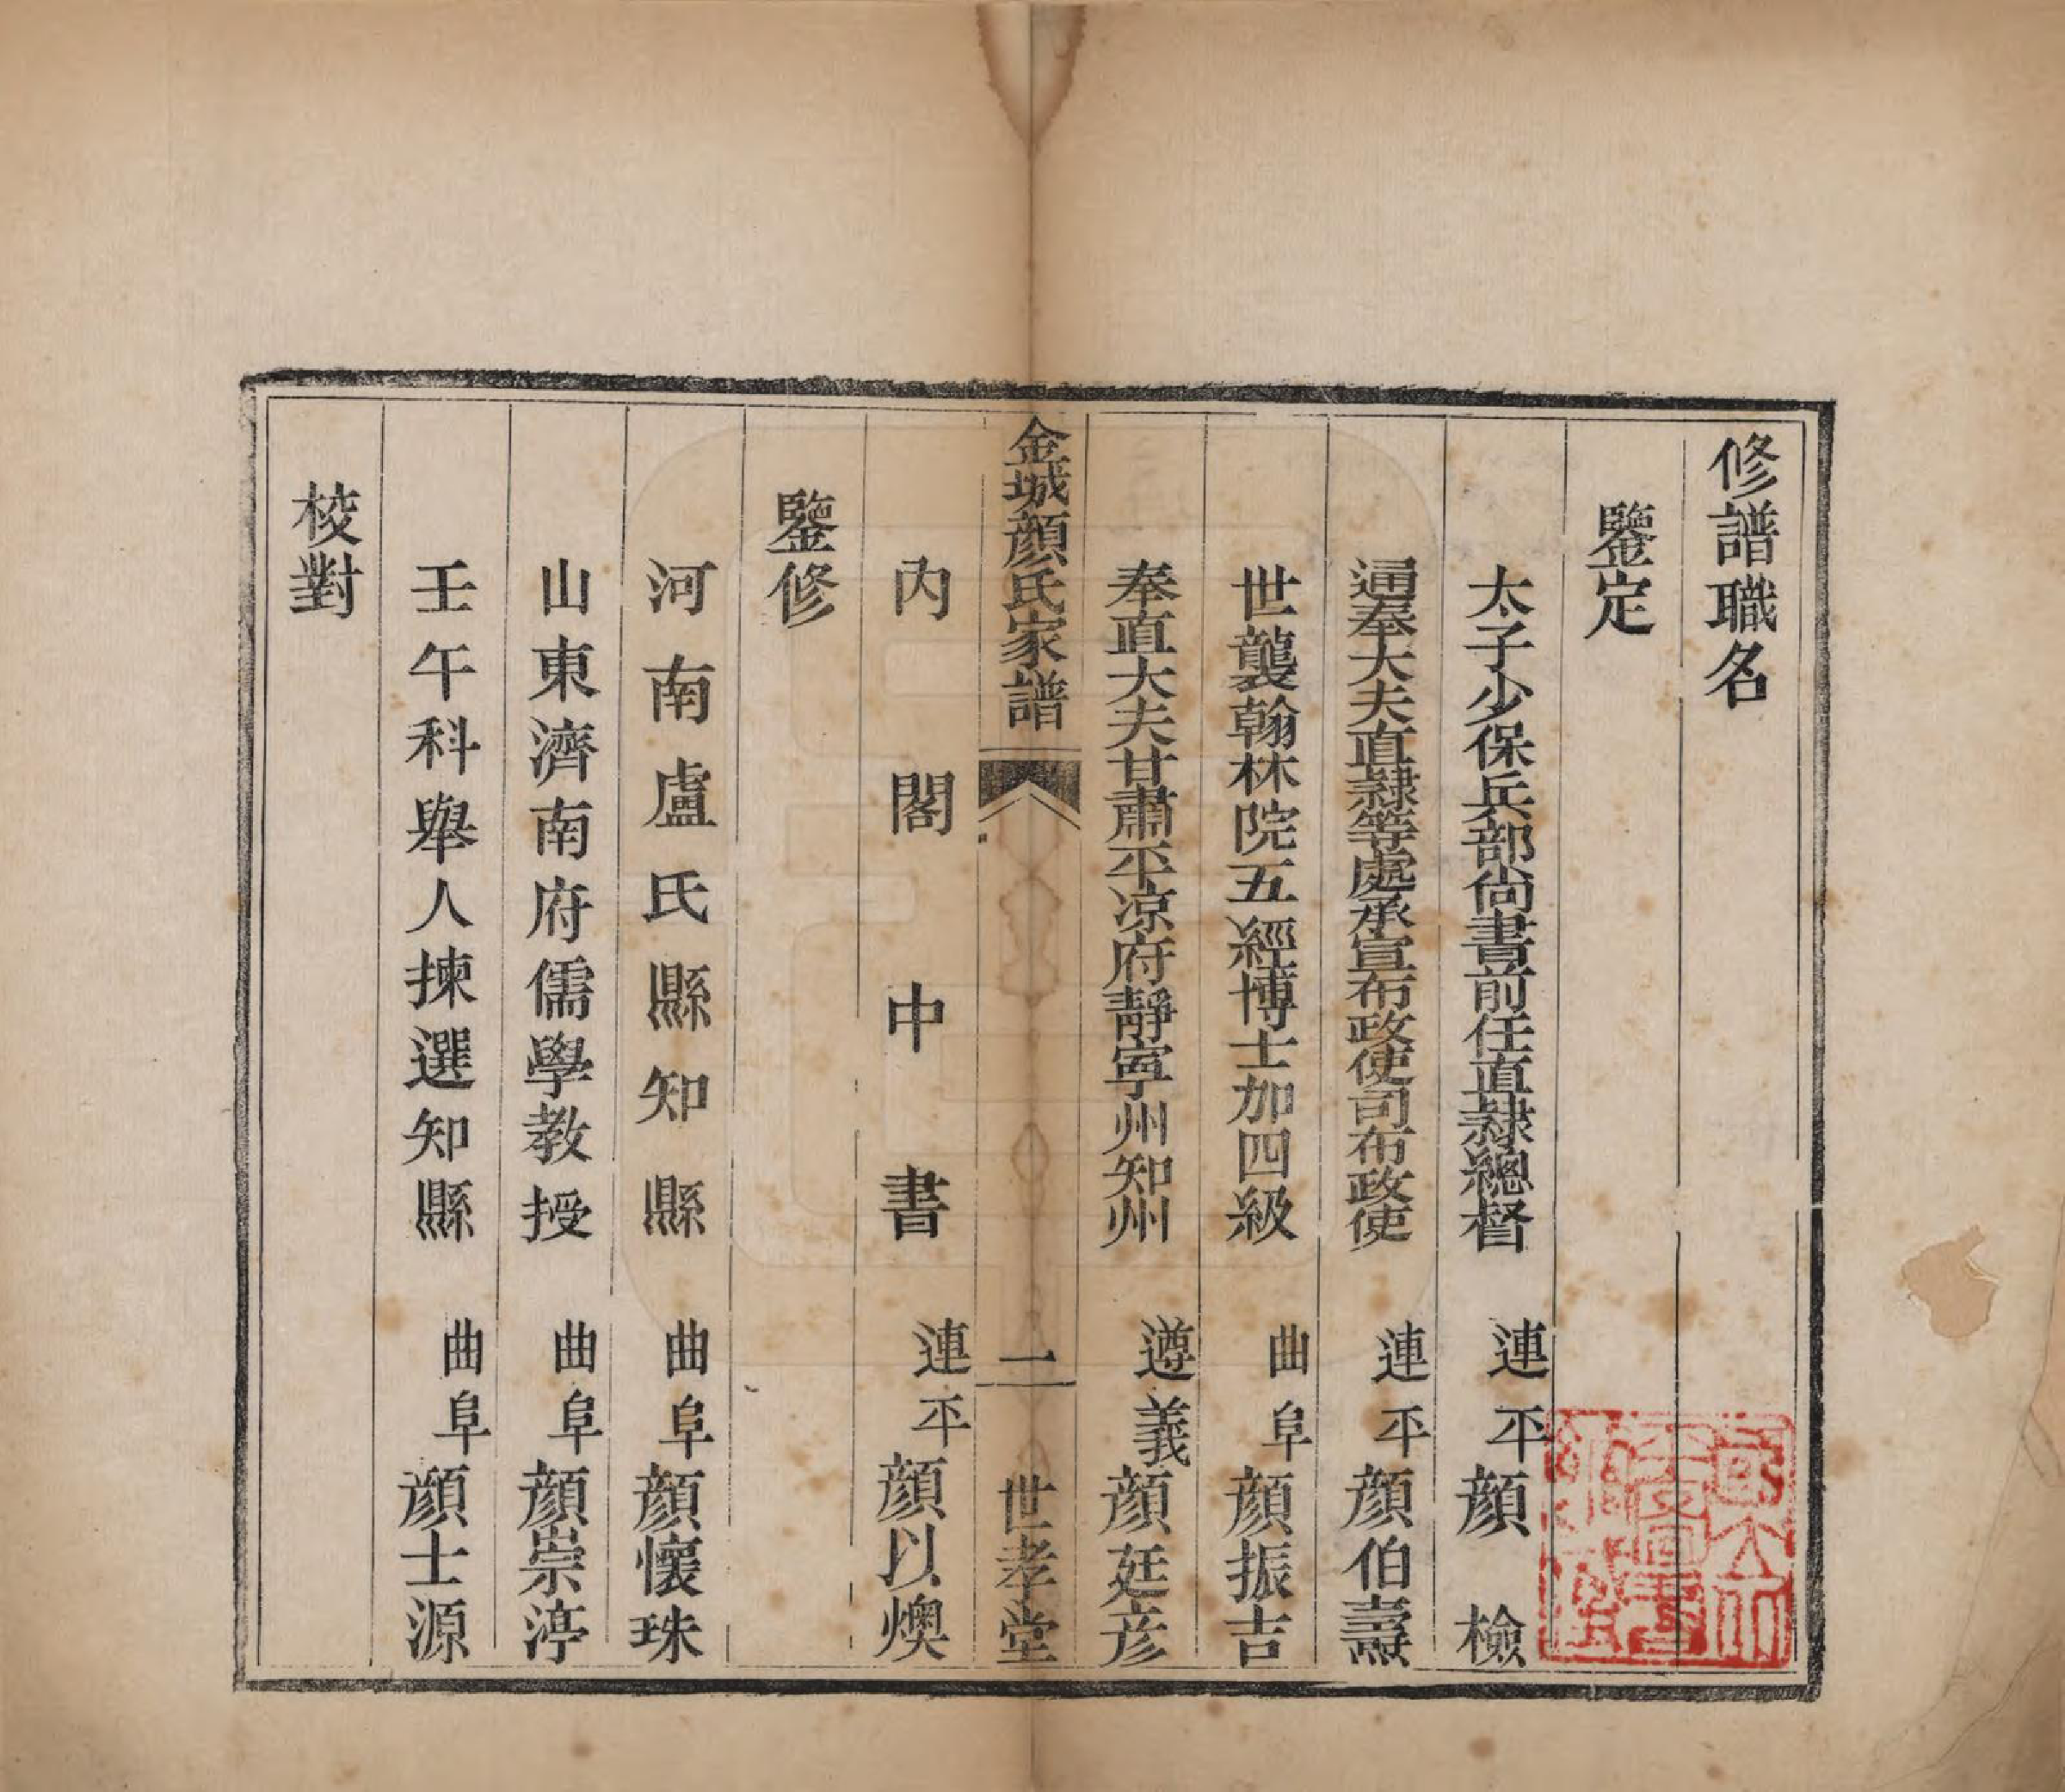 修譜職名
鑒定
太子少保兵部尙書前任直隸總督 連平顔檢
通奉大夫直隸等處承宣布政使司布政使 連平顔伯燾
世襲翰林院五經博士加四級 曲阜顔振吉
奉直大夫甘肅平凉府靜寧州知州 遵義顔廷彦
金城顔氏家譜 二 世孝堂
內閣中書 連平顔以燠
鑒修
河南盧氏縣知縣 曲阜顔懷珠
山東濟南府儒學教授 曲阜顔崇渟
壬午科舉人揀選知縣 曲阜顔士源
校對